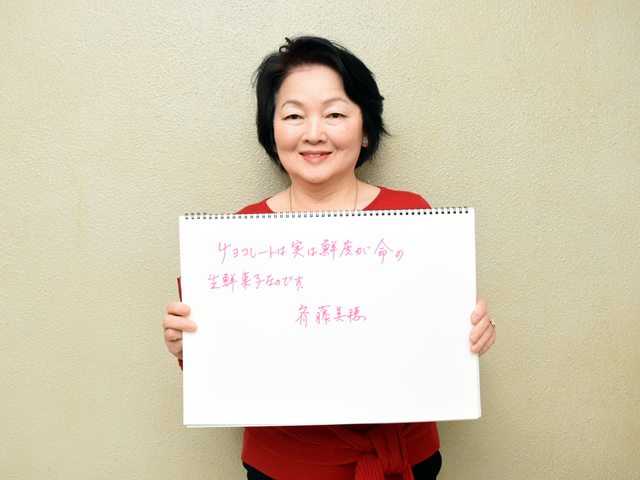 チョコレートは実は鮮度が命の
生鮮菓子なのです。
斉藤美穂